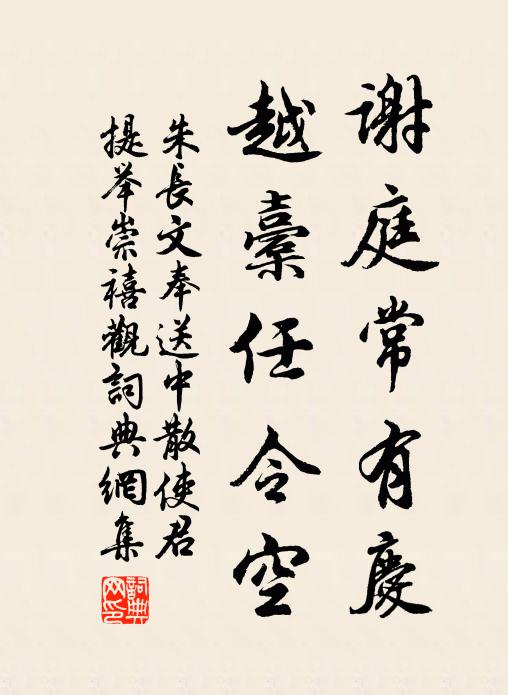 謝庭常有慶
越橐任令空
朱長文奉送中散使君
提举崇禧觀詞典網集
詞典网印